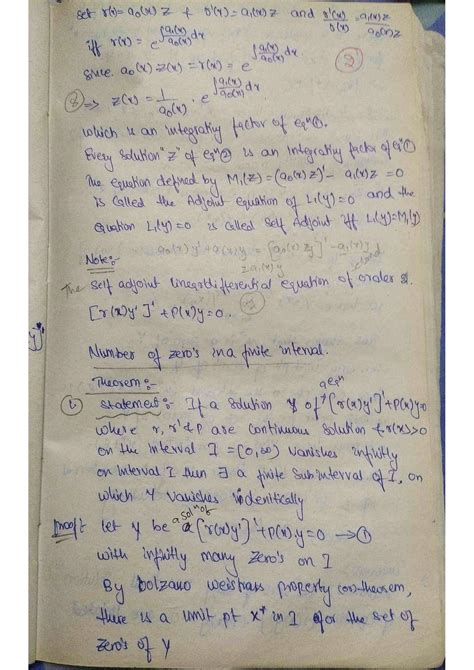 Set r(x) = a₀(x) z & r'(x) = a₁(x) z and r'(x)/r(x) = a₁(x)z/a₀(x)z
iff r(x) = e^∫a₁(x)/a₀(x) dx
Since a₀(x) z(x) = r(x) = e^∫a₁(x)/a₀(x) dx
⇒ z(x) = 1/a₀(x) . e^∫a₁(x)/a₀(x) dx
which is an integrating factor of eqⁿ①.
Every solution "z" of eqⁿ② is an integrating factor of eqⁿ①
The equation defined by M₁(z) = (a₀(x) z)' - a₁(x)z = 0
is called the Adjoint equation of L₁(y) = 0 and the
equation L₁(y) = 0 is called Self Adjoint iff L₁(y) = M₁(y)
a₀(x)y' + a₁(x)y = [a₀(x) y]' - a₁(x)y
2a₁(x)y
Note:-
The Self adjoint linear differential equation of order 2.
[r(x)y']' + P(x)y = 0.
Number of zero's in a finite interval.
Theorem:-
a eqⁿ
Statement:- If a solution y of [r(x)y']' + P(x)y=0
where r, r' & P are continuous solution & r(x)>0
on the interval I = [0,∞) vanishes infinitly
on interval I then ∃ a finite subinterval of I, on
which y vanishes identically
a solⁿ of
Proof: let y be [r(x)y']' + P(x)y = 0 → ①
with infinitly many zero's on I
By bolzano weistrass property (or) theorem,
there is a limit pt x* in I for the set of
zero's of y